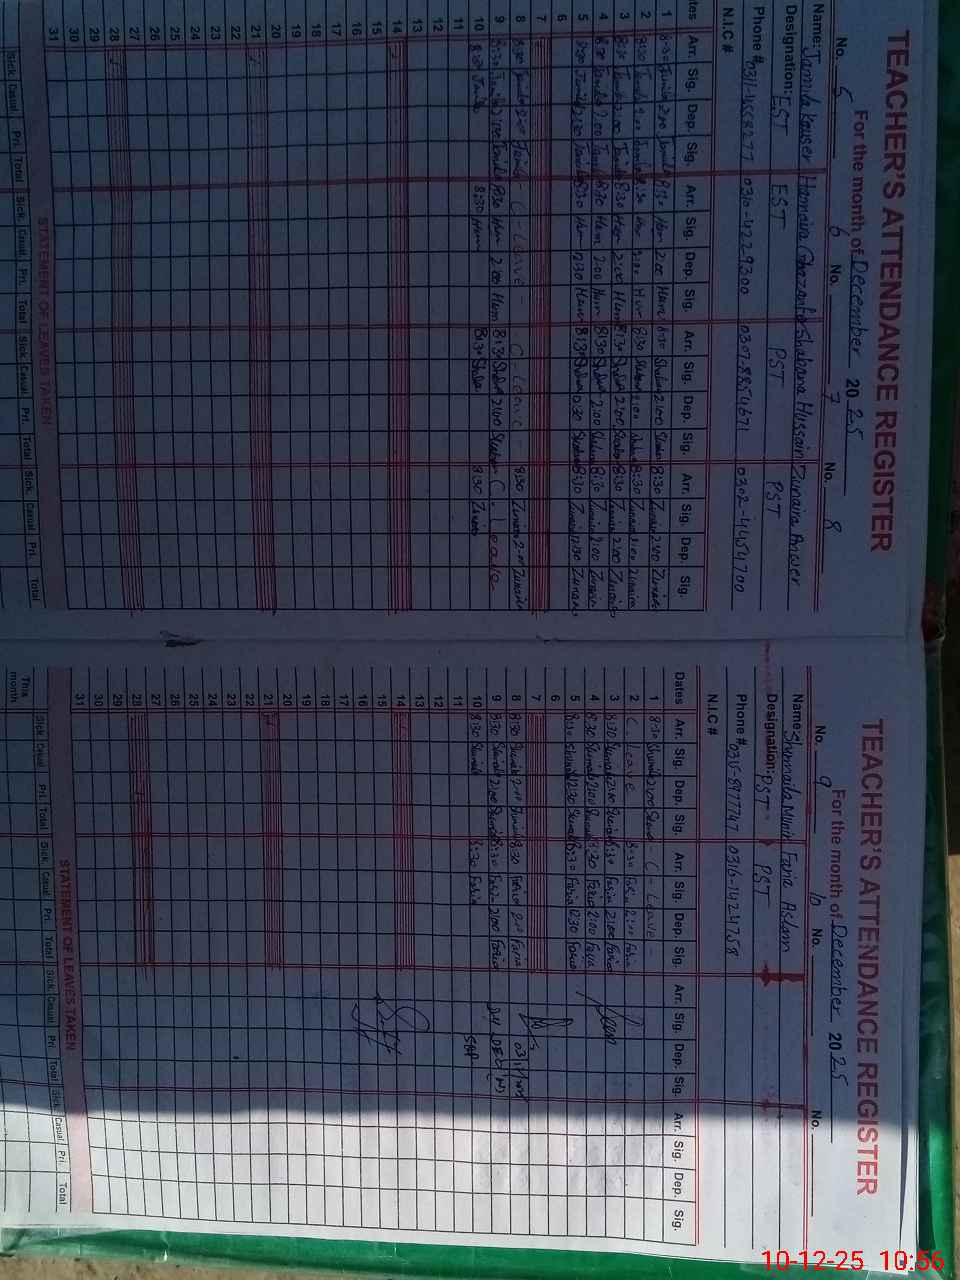 TEACHER'S ATTENDANCE REGISTER
For the month of December 2025
No. 5 No. 6 No. 7 No. 8
Name: Jamila Kauser Humaira Ghazanfar Shabana Hussain Zunaira Anwer
Designation: EST EST PST PST
Phone # 0310-4229300 0307-8854671 0302-4454700
N.I.C #
Dates Arr. Sig. Dep. Sig. Arr. Sig. Dep. Sig. Arr. Sig. Dep. Sig. Arr. Sig. Dep. Sig.
1 8:30 Jamila 2:00 Jamila 8:30 Hum 2:00 Hum 8:30 Shaban 2:00 Shaban 8:30 Zunaira 2:00 Zunaira
2 8:30 Jamila 2:00 Jamila 8:30 Hum 2:00 Hum 8:30 Shaban 2:00 Shaban 8:30 Zunaira 2:00 Zunaira
3 8:30 Jamila 2:00 Jamila 8:30 Hum 2:00 Hum 8:30 Shaban 2:00 Shaban 8:30 Zunaira 2:00 Zunaira
4 8:30 Jamila 2:00 Jamila 8:30 Hum 2:00 Hum 8:30 Shaban 2:00 Shaban 8:30 Zunaira 2:00 Zunaira
5 8:30 Jamila 12:30 Jamila 8:30 Hum 12:30 Hum 8:30 Shaban 12:30 Shaban 8:30 Zunaira 12:30 Zunaira
6
7
8 8:30 Jamila 2:00 Jamila - C - Leave - C - Leave - 8:30 Zunaira 2:00 Zunaira
9 8:30 Jamila 2:00 Jamila 8:30 Hum 2:00 Hum 8:30 Shaban 2:00 Shaban C - Leave
10 8:30 Jamila 8:30 Hum 8:30 Shaban 8:30 Zunaira
11
12
13
14
15
16
17
18
19
20
21
22
23
24
25
26
27
28
29
30
31
STATEMENT OF LEAVES TAKEN
Sick. Casual Pri. Total Sick. Casual. Pri. Total Sick. Casual. Pri. Total Sick. Casual. Pri. Total
TEACHER'S ATTENDANCE REGISTER
For the month of December 2025
No. 9 No. 10 No. No.
Name: Shumaila Munir Faria Aslam
Designation: PST PST
Phone # 0311-8977747 0316-1424758
N.I.C #
Dates Arr. Sig. Dep. Sig. Arr. Sig. Dep. Sig. Arr. Sig. Dep. Sig. Arr. Sig. Dep. Sig.
1 8:30 Shumaila 2:00 Shumaila - C - Leave -
2 C. Leave 8:30 Faria 2:00 Faria
3 8:30 Shumaila 2:00 Shumaila 8:30 Faria 2:00 Faria
4 8:30 Shumaila 2:00 Shumaila 8:30 Faria 2:00 Faria
5 8:30 Shumaila 12:30 Shumaila 8:30 Faria 12:30 Faria
6
7
8 8:30 Shumaila 2:00 Shumaila 8:30 Faria 2:00 Faria
9 8:30 Shumaila 2:00 Shumaila 8:30 Faria 2:00 Faria
10 8:30 Shumaila 8:30 Faria
11
12
13
14
15
16
17
18
19
20
21
22
23
24
25
26
27
28
29
30
31
STATEMENT OF LEAVES TAKEN
This month Sick. Casual. Pri. Total Sick. Casual. Pri. Total Sick. Casual. Pri. Total Sick. Casual. Pri. Total
10-12-25 10:56